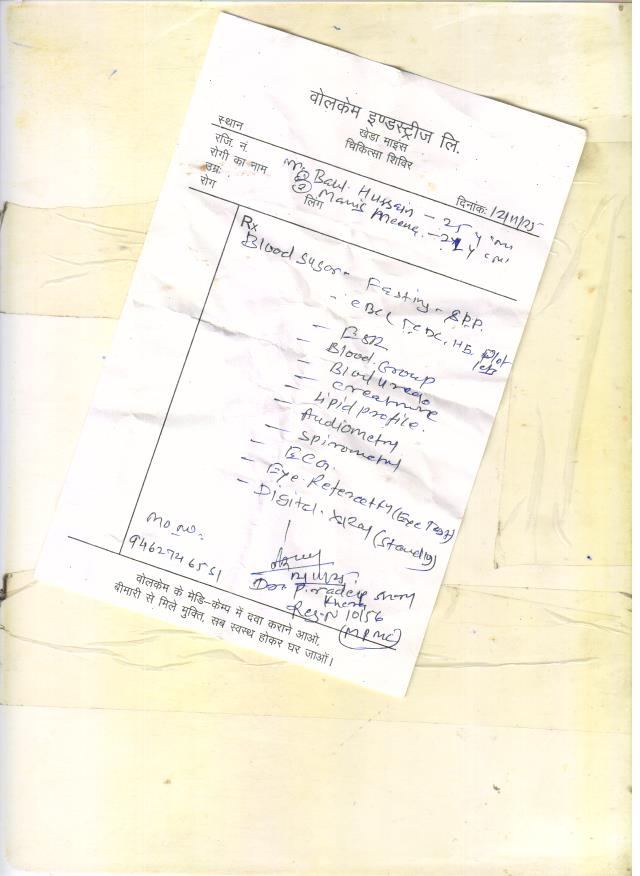 वोलकेम इण्डस्ट्रीज लि.
खेडा माइंस
चिकित्सा शिविर
स्थान
रजि. नं.
दिनांक: 12/11/25
रोगी का नाम
① Babu Hussain - 25 y
उम्र:
लिंग
② Manis Meena - y
रोग
Rx
Blood Sugar - Fasting - & P.P.
- CBC ( TC DC, HB, Plat
lets
- ESR
- Blood Group
- Blood Urea
- Creatinine
- Lipid profile.
- Audiometry
- Spirometry
- ECG.
- Eye. (Eye Test)
- Digital. X Ray (Standig)
Mo no:
9462746551
12/11/25.
Dr. Pradeep
Khera
Reg-N 10156
(MPMC)
वोलकेम के मेडि-केम्प में दवा कराने आओ,
बीमारी से मिले मुक्ति, सब स्वस्थ होकर घर जाओं।